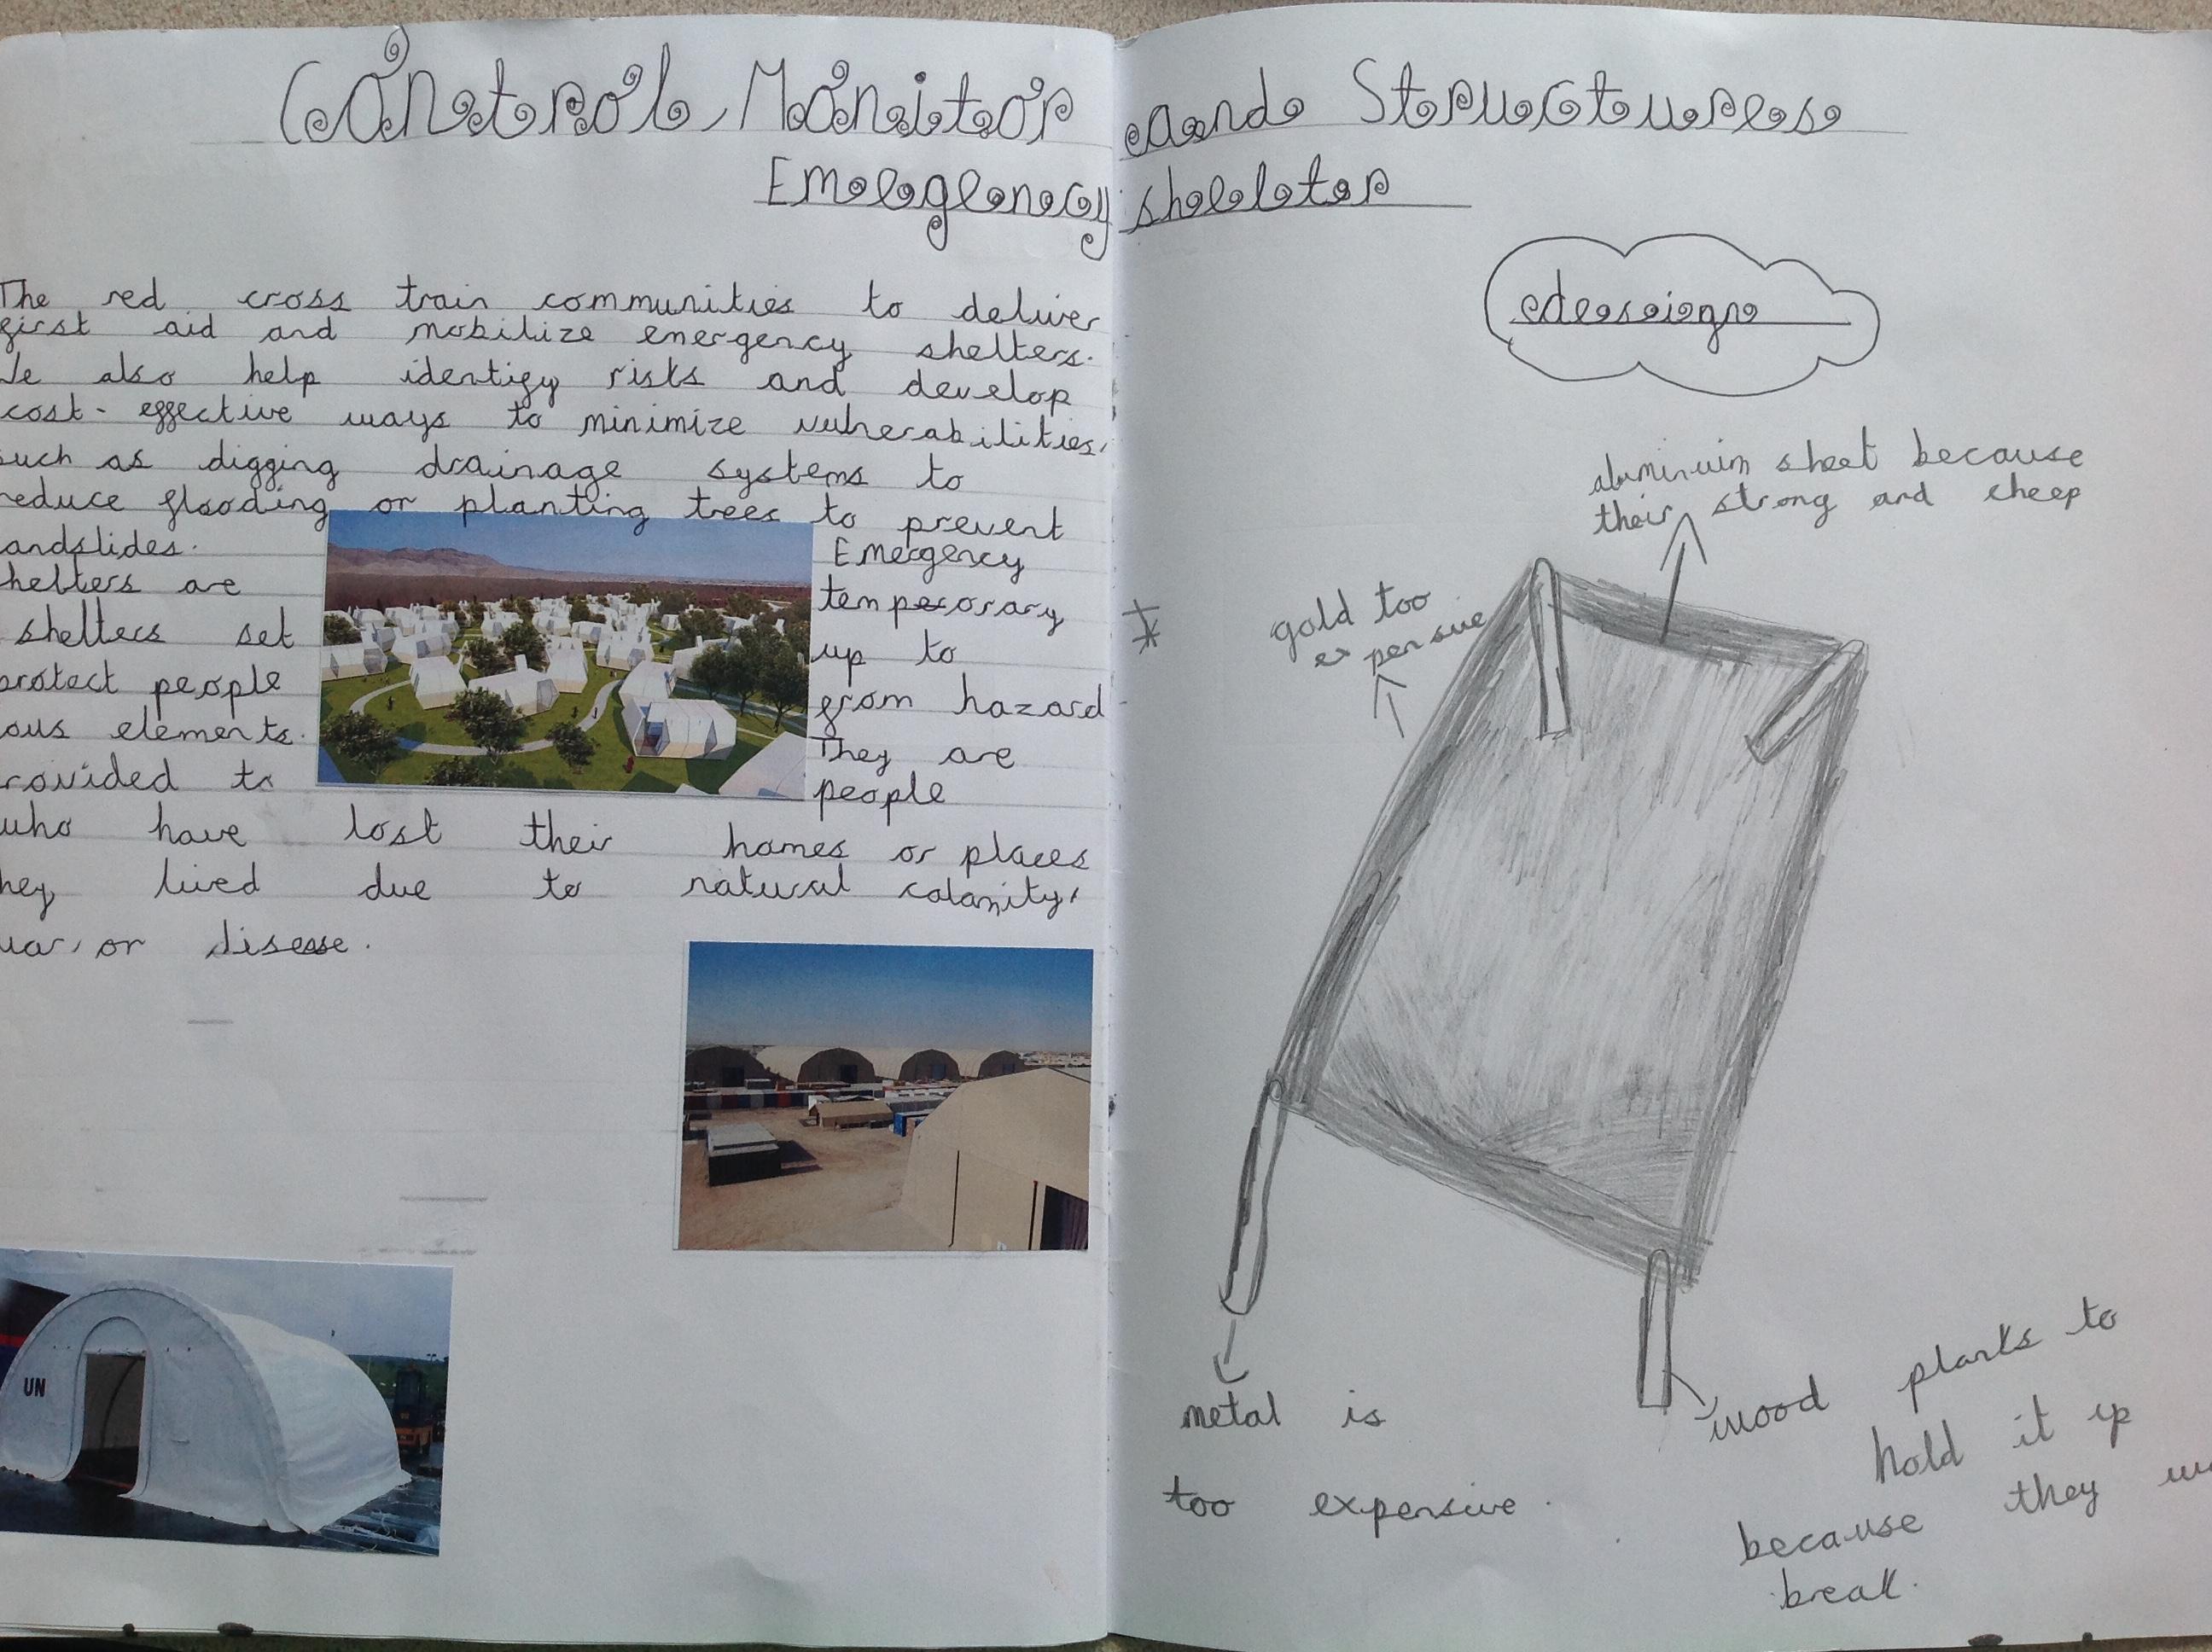 Control, Monitor and Structures
Emergency shelter
The red cross train communities to deliver
first aid and mobilize emergency shelters.
also help identify risks and develop
cost-effective ways to minimize vulnerabilities,
uch as digging drainage systems to
reduce flooding or planting trees to prevent
andslides. Emergency
helters are temperorary
shelters set up to
protect people from hazard
ous elements. They are
rovided to people
who have lost their homes or places
hey lived due to natural calamity,
war, or disease.
UN
design
aluminium sheet because
their strong and cheep
gold too
expensive
metal is
too expensive.
wood planks to
hold it up
because they
break.